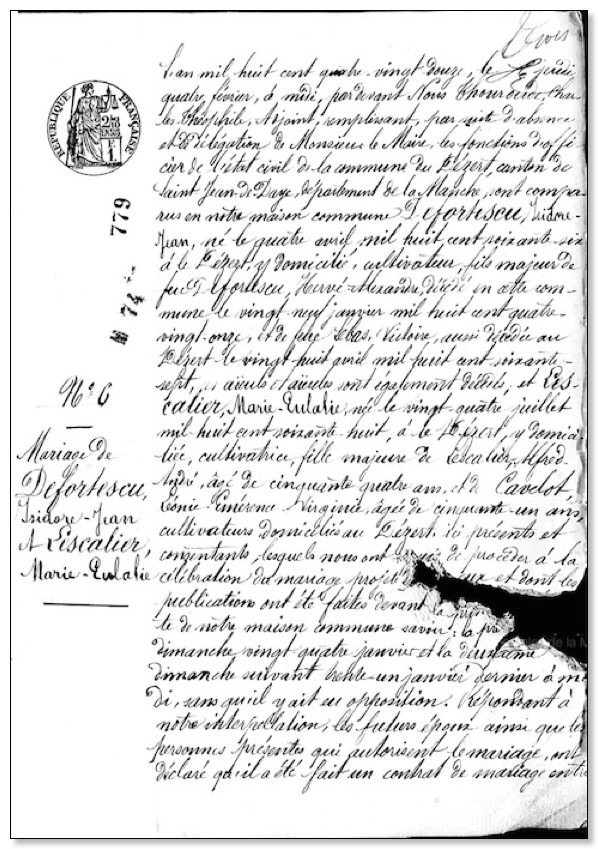 RÉPUBLIQUE FRANÇAISE
779
N° 6
Mariage de
Defortescu,
Isidore-Jean
et Lescalier,
Marie-Eulalie
L'an mil huit cent quatre-vingt douze, le jeudi
quatre février, à midi, pardevant Nous Char-
les Théophile, Adjoint, remplissant, par suite d'absence
et de délégation de Monsieur le Maire, les fonctions d'offi-
cier de l'état civil de la commune du Dézert, canton de
Saint Jean-de-Daye, département de la Manche, ont compa-
rus en notre maison commune Defortescu, Isidore-
Jean, né le quatre avril mil huit cent soixante-six
à le Dézert, y domicilié, cultivateur, fils majeur de
feu Defortescu, Hervé-Alexandre, décédé en cette com-
mune le vingt-neuf janvier mil huit cent quatre-
vingt-onze, et de feue Victoire, aussi décédée au
Dézert le vingt-huit avril mil huit cent soixante-
sept, ses aïeuls et aïeules sont également décédés, et Les-
calier, Marie-Eulalie, née le vingt quatre juillet
mil huit cent soixante huit, à le Dézert, y domici-
liée, cultivatrice, fille majeure de Lescalier, Alfred-
André, âgé de cinquante quatre ans, et de Cavelot,
Léonie-Emérence Virginie, âgée de cinquante un ans,
cultivateurs domiciliés au Dézert, ici présents et
consentants, lesquels nous ont de procéder à la
célébration du mariage projeté et dont les
publications ont été faites devant la
te de notre maison commune savoir: la
dimanche vingt quatre janvier et la deuxième
dimanche suivant trente-un janvier dernier à mi-
di, sans qu'il y ait eu opposition. Répondant à
notre interpellation, les futurs époux ainsi que les
personnes présentes qui autorisent le mariage, ont
déclaré qu'il a été fait un contrat de mariage entre